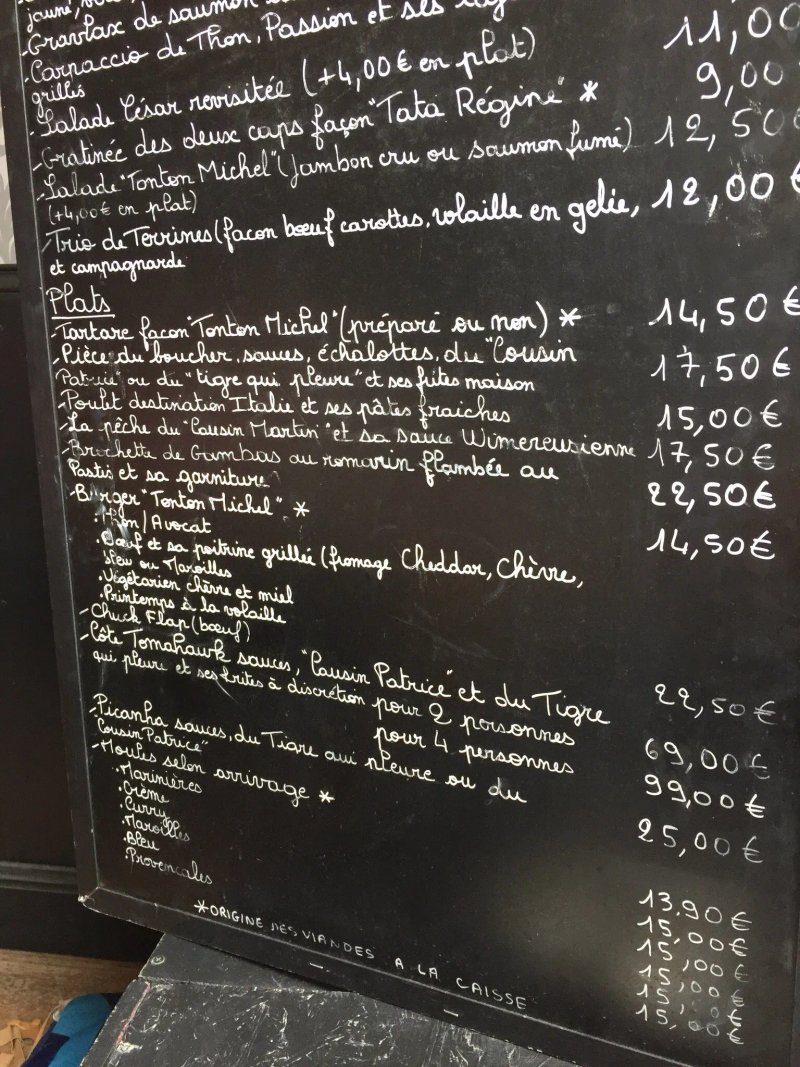 -Gravlax de saumon
-Carpaccio de Thon, Passion et ses
grillés 11,00
-Salade César revisitée (+4,00€ en plat) 9,00
-Gratinée des deux caps façon "Tata Régine" * 12,50
-Salade "Tonton Michel" (Jambon cru ou saumon fumé)
(+4,00€ en plat) 12,00 €
-Trio de Terrines (façon bœuf carottes, volaille en gelée,
et campagnarde
Plats
-Tartare façon "Tonton Michel" (préparé ou non) * 14,50€
-Pièce du boucher, sauces, échalottes, du "Cousin 17,50€
Patrice ou du "tigre qui pleure" et ses frites maison
-Poulet destination Italie et ses pâtes fraiches 15,00€
-La pêche du "Cousin Martin" et sa sauce Wimereusienne 17,50€
-Brochette de Gambas au romarin flambée au
Pastis et sa garniture 22,50€
-Burger "Tonton Michel" * 14,50€
.Thon/Avocat
.Bœuf et sa poitrine grillée (fromage Cheddar, Chèvre,
bleu ou Maroilles
.Végétarien chèvre et miel
.Printemps à la volaille
-Chuck Flap (bœuf) 22,50€
-Côte Tomahawk sauces, "Cousin Patrice" et du Tigre
qui pleure et ses frites à discrétion pour 2 personnes 69,00€
pour 4 personnes 99,00€
-Picanha sauces, du Tigre qui pleure ou du
Cousin Patrice" 25,00€
-Moules selon arrivage *
.Marinières 13,90€
.Crème 15,00€
.Curry 15,00€
.Maroilles 15,00€
.Bleu 15,00€
.Provencales 15,00€
*ORIGINE DES VIANDES A LA CAISSE